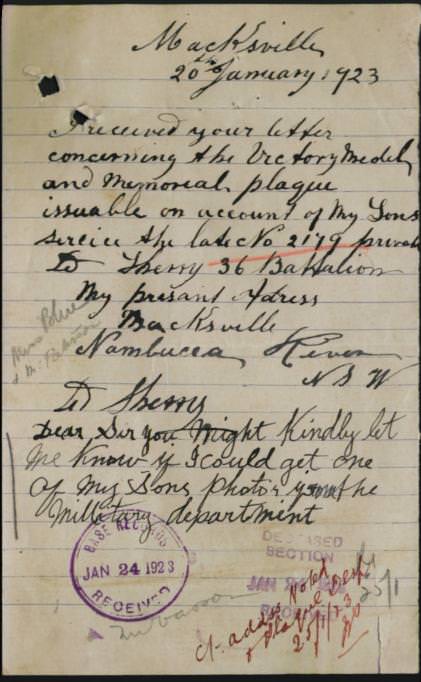 Macksville
20th January 1923
I received your letter
concerning the Victory Medel
and Memorial plaque
issuable on account of My Sons
sercice the late No 2179 private
D Sherry 36 Battalion
My presant Adress
Macksville
Nambucca River
N S W
D Sherry
Dear Sir you Might Kindly let
me know if I could get one
of My Sons photos
the
Millitary department
BASE RECORDS
JAN 24 1923
RECEIVED
DECEASED
SECTION
JAN 24 1923
RECEIVED
25/1
Cf address Noted
25/1/23